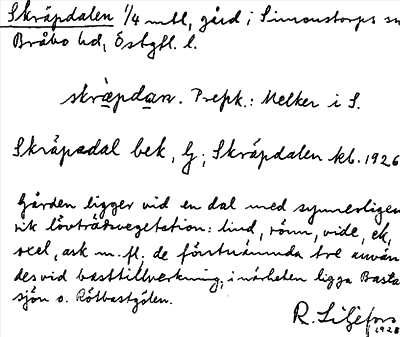 Skräpdalen 1/4 mtl, gård i Simonstorps sn
Bråbo hd, Östgtl. l.
skrä̀pdan. Prepk.: Melker i S.
Skräpsdal bek, G; Skräpdalen kb. 1926
Gården ligger vid en dal med synnerligen
rik lövträdsvegetation: lind, rönn, vide, ek,
oxel, ask m. fl. de förstnämnda tre använ
des vid basttillverkning, i närheten ligga Basta
sjön o. Rötbastgölen.
R. Liljefors
1928